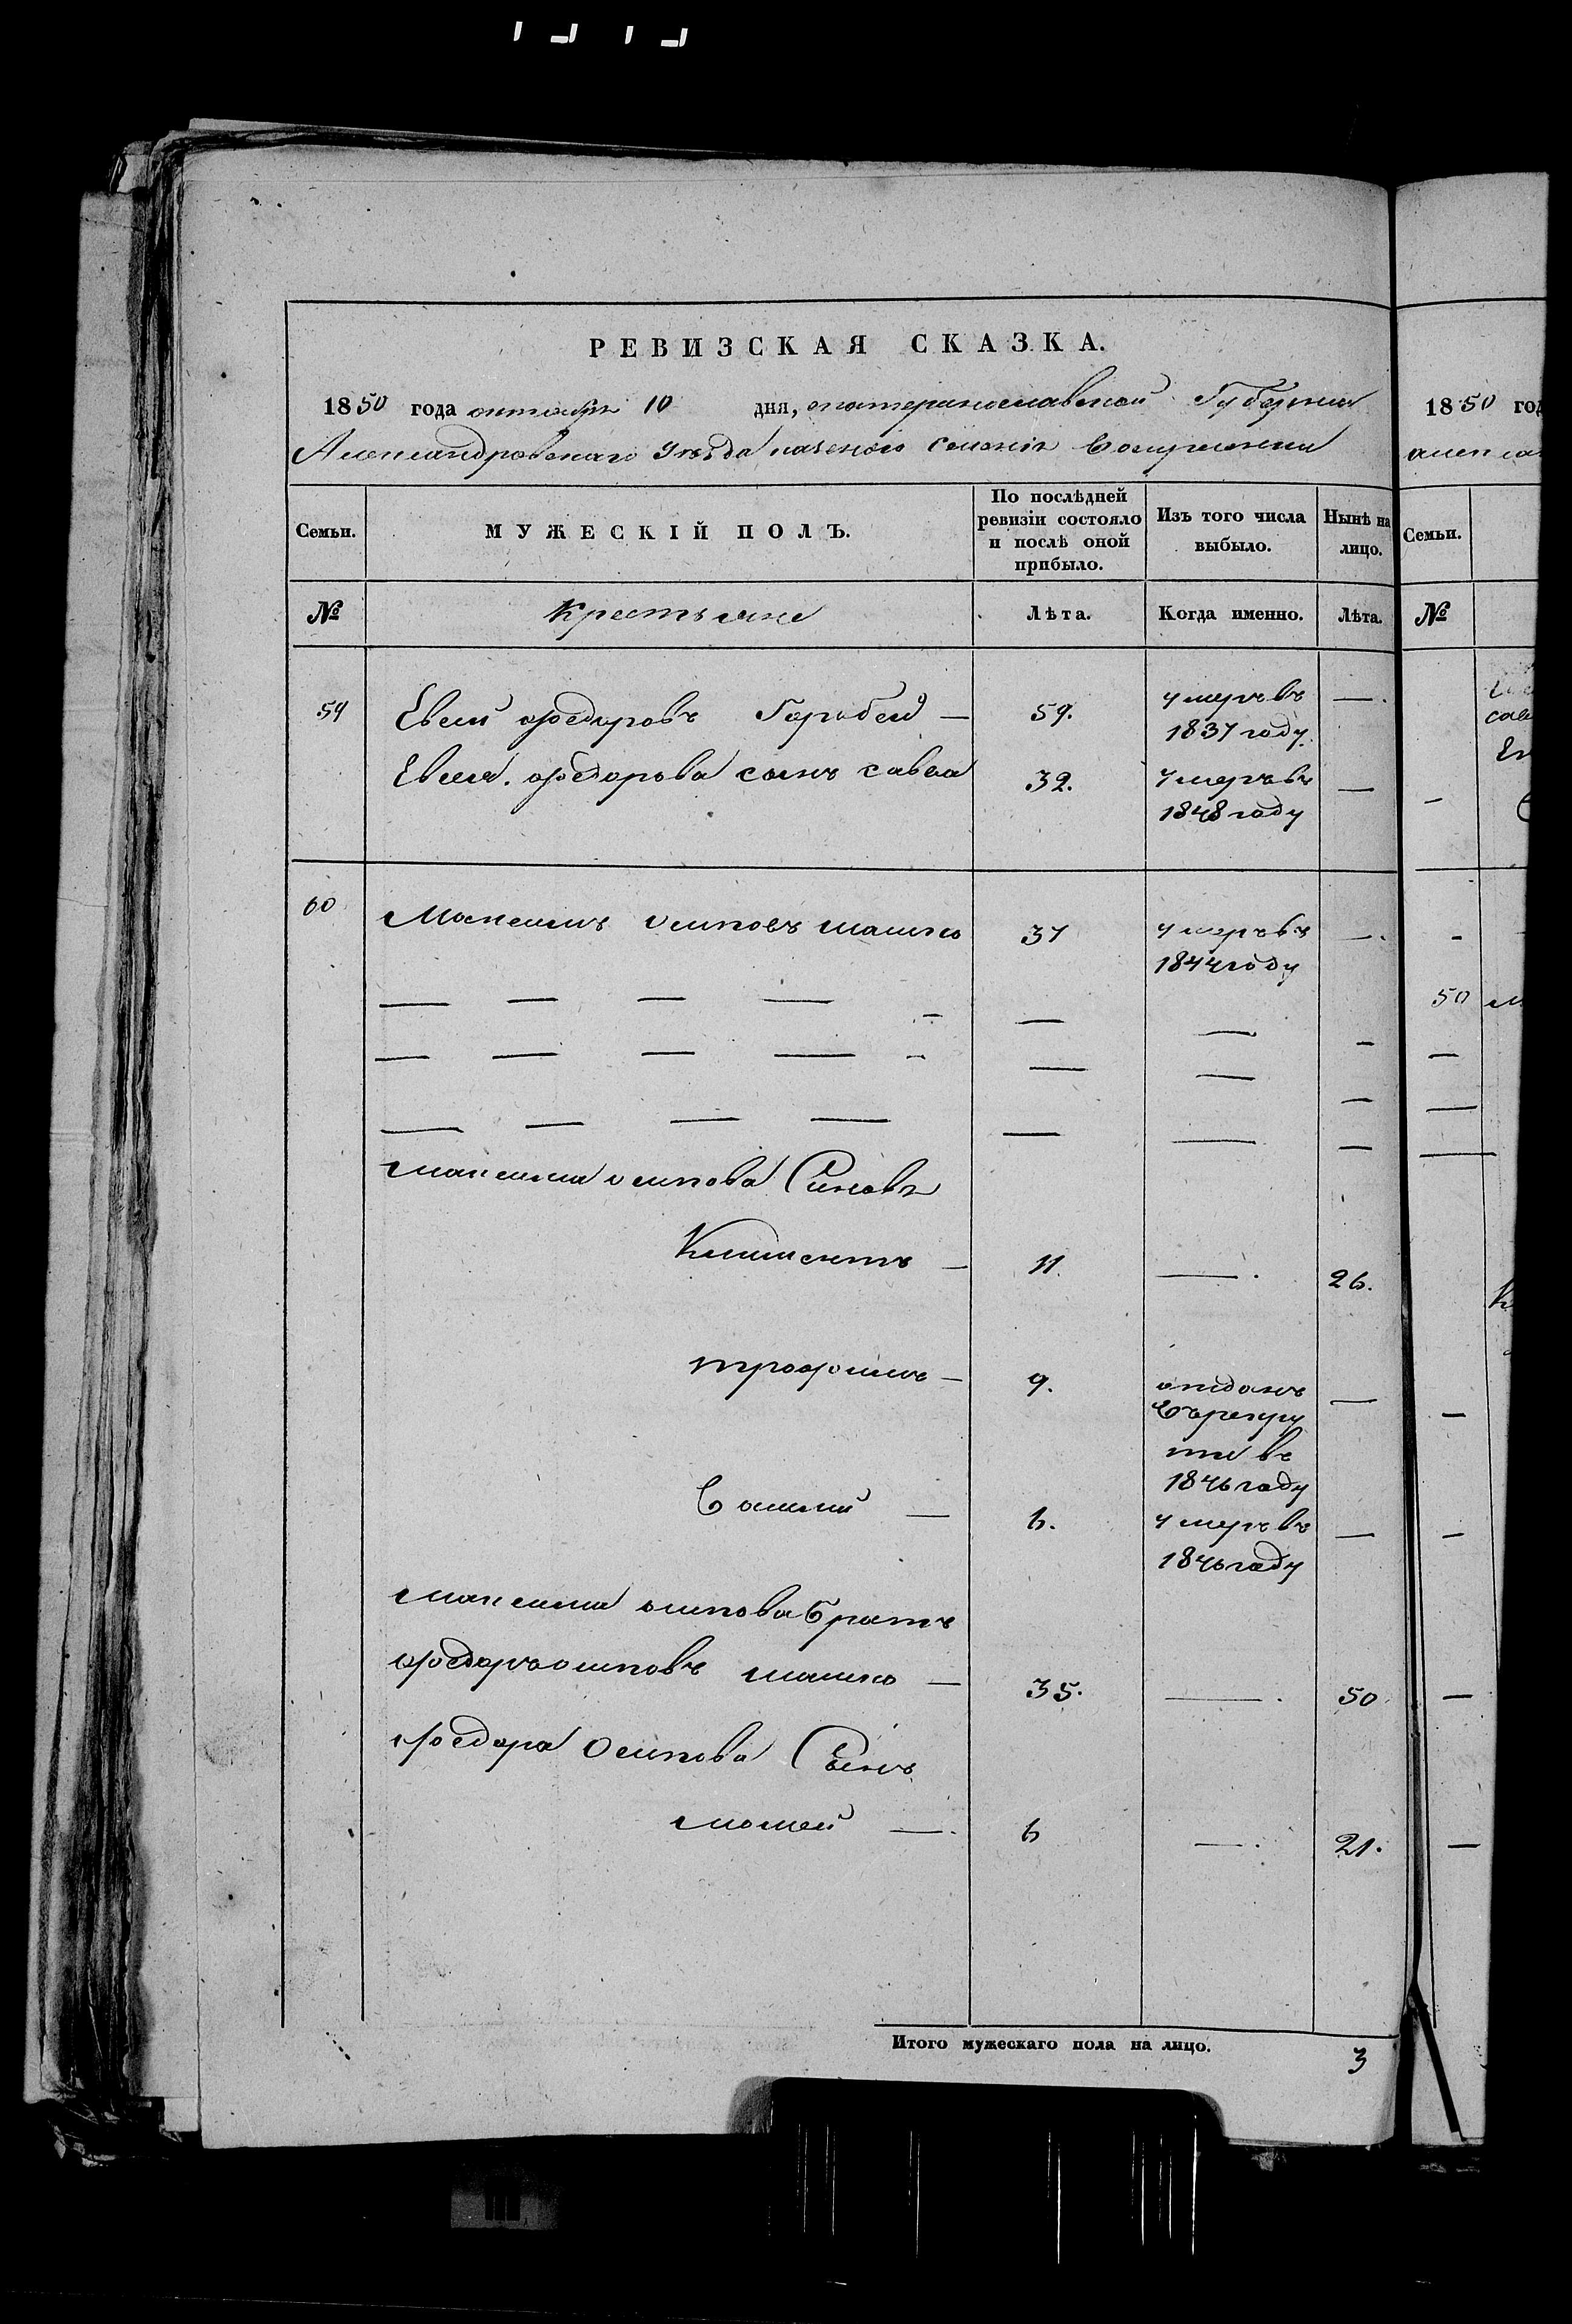 РЕВИЗСКАЯ СКАЗКА.
1850 года октября 10 дня, екатеринославской Губернии
Александровскаго Уезда казеного селенія
МУЖЕСКІЙ ПОЛЪ.
Семьи.
По послѣдней ревизіи состояло и послѣ оной прибыло.
Изъ того числа выбыло.
Нынѣ на лицо.
№ Крестьяне Лѣта. Когда именно. Лѣта.
59 Евсей федоровъ Горобей — 59. умеръ въ 1837 году —.
Евсея федорова сынъ савва 32. умеръ въ 1848 году —
60 Максимъ осиповъ машко 37 умеръ въ 1844 году —.
— — — — - — — -
— — — — - — — —
— — — — — — —
максима осипова Синовя
Климентъ — 11. —. 26.
трофимъ — 9. отданъ въ рекруты въ 1846 году —
Василий — 6. умеръ въ 1846 году —
максима осипова братъ
федоръ осиповъ машко — 35. —. 50
федора Осипова Сынъ
мосей —. 6 —. 21.
Итого мужескаго пола на лицо. 3
1850 год
Семьи.
№
50